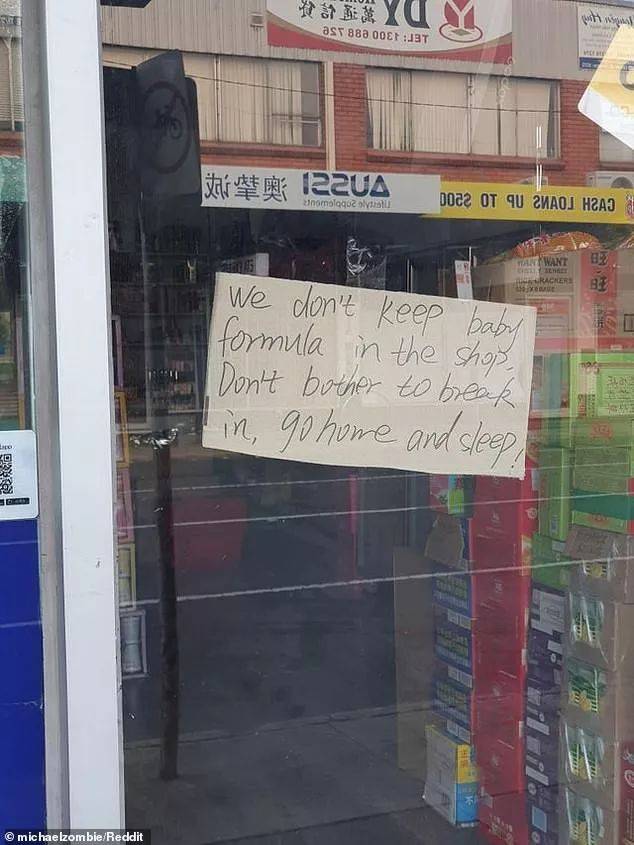 DY
萬通信貸
TEL: 1300 688 726
AUSSI 澳挚诚
Lifestyle Supplements
CASH LOANS UP TO $500
WANT WANT
We don't keep baby
formula in the shop.
Don't bother to break
in, go home and sleep!
©michaelzombie/Reddit